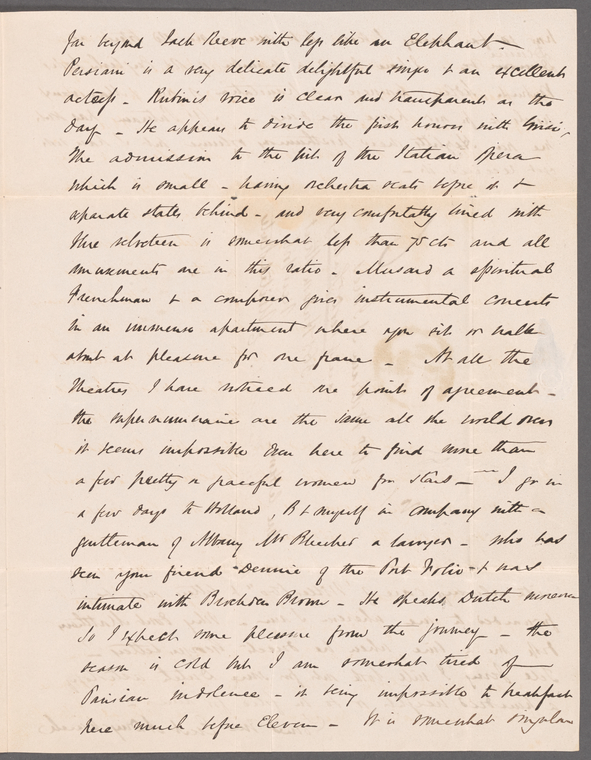 far beyond Jack Reeve with legs like an Elephant -
Persiani is a very delicate delightful singer & an excellent
actress - Rubini's voice is clear and transparent as the
day - He appears to divide the first honors with Grisi,
The admission to the pit of the Italian Opera
which is small - having orchestra seats before it &
separate stalls behind -, and very comfortably lined with
blue velveteen is somewhat less than 75 cts and all
amusements are in this ratio - Musard a spiritual
Frenchman & a composer gives instrumental concerts
in an immense apartment where you sit or walk
about at pleasure for one franc - At all the
theatres I have noticed one point of agreement -
the supernumeraries are the same all the world over
it seems impossible even here to find more than
a few pretty or graceful women for stars - I go in
a few days to Holland, B & myself in company with a
gentleman of Albany Mr Bleecker a lawyer - who has
seen your friend "Dennie of the Port Folio" & was
intimate with Brockden Brown - He speaks Dutch moreover
So I expect some pleasure from the journey - the
season is cold but I am somewhat tired of
Parisian indolence - it being impossible to breakfast
here much before Eleven - It is somewhat singular